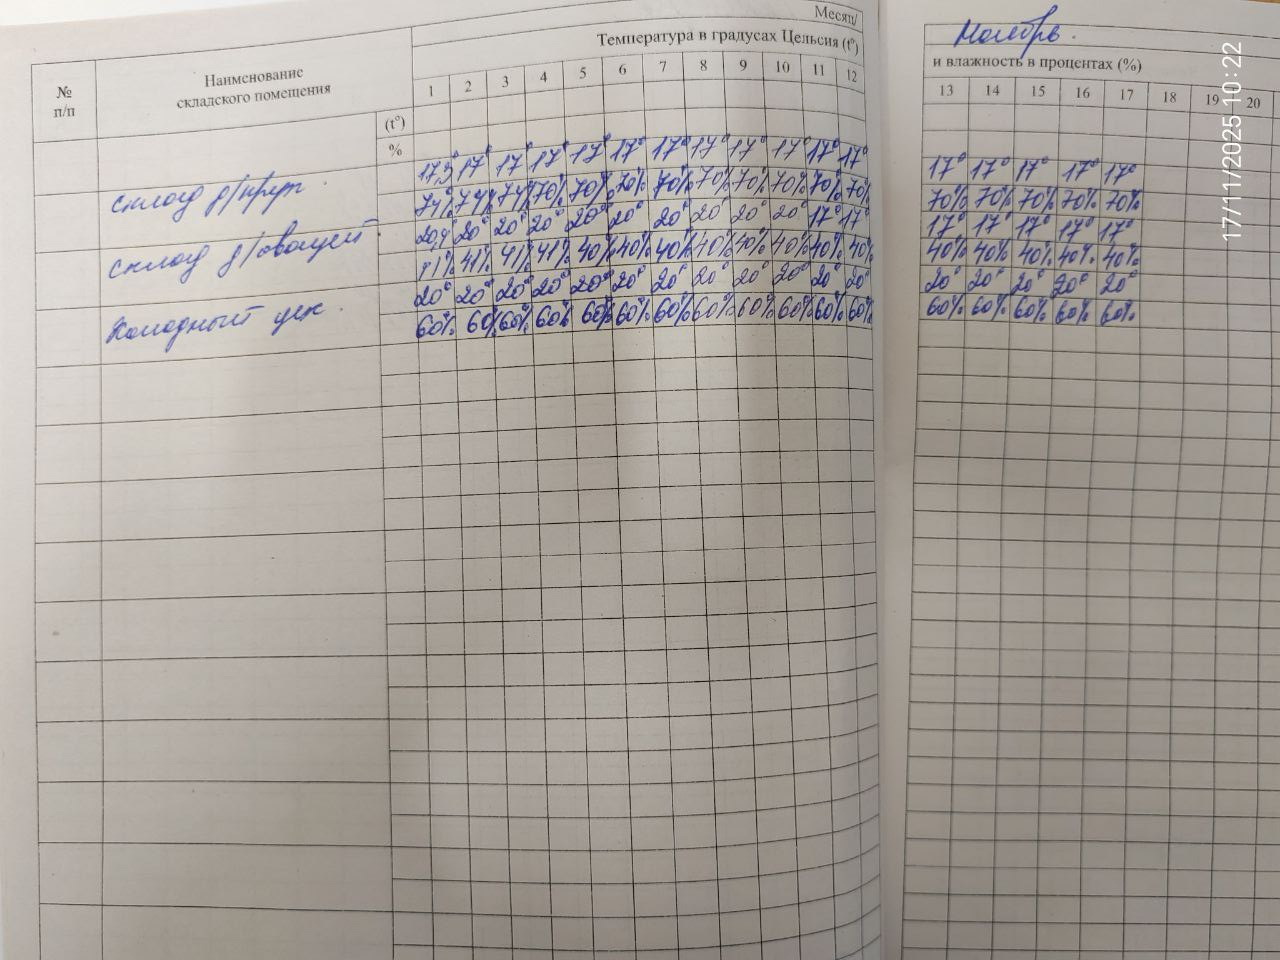 Месяц/ Ноябрь.
№ п/п
Наименование складского помещения
Температура в градусах Цельсия (t°) и влажность в процентах (%)
1 2 3 4 5 6 7 8 9 10 11 12 13 14 15 16 17 18 19 20
(t°)
%
склад д/круп. 17,3° 17° 17° 17° 17° 17° 17° 17° 17° 17° 17° 17° 17° 17° 17° 17° 17°
74% 74% 74% 70% 70% 70% 70% 70% 70% 70% 70% 70% 70% 70% 70% 70% 70%
склад д/овощей. 20,4° 20° 20° 20° 20° 20° 20° 20° 20° 20° 17° 17° 17° 17° 17° 17° 17°
41% 41% 41% 40% 40% 40% 40% 40% 40% 40% 40% 40% 40% 40% 40% 40%
Холодный цех. 20° 20° 20° 20° 20° 20° 20° 20° 20° 20° 20° 20° 20° 20° 20° 20° 20°
60% 60% 60% 60% 60% 60% 60% 60% 60% 60% 60% 60% 60% 60% 60% 60% 60%
17/11/2025 10:22